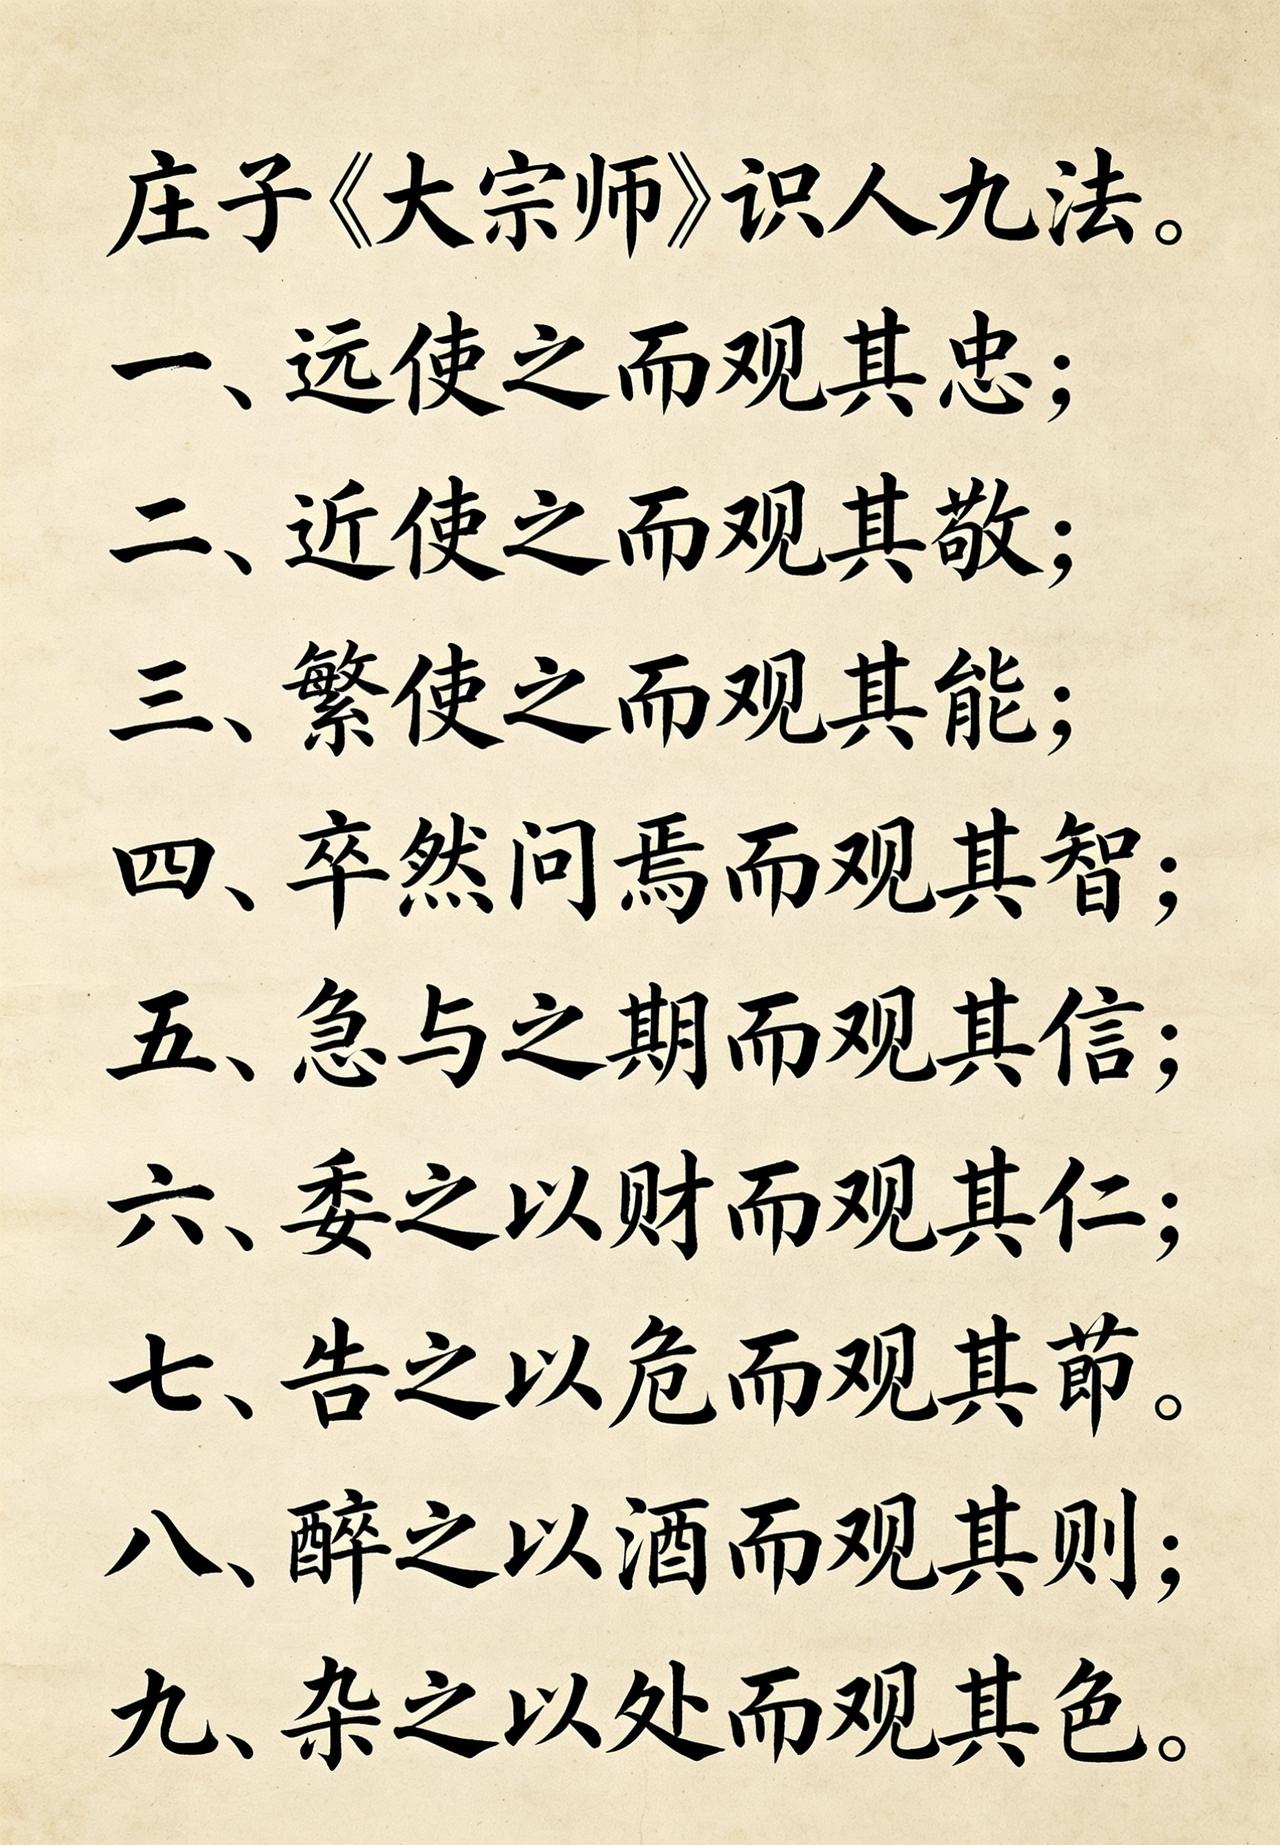 庄子《大宗师》识人九法。
一、远使之而观其忠；
二、近使之而观其敬；
三、繁使之而观其能；
四、卒然问焉而观其智；
五、急与之期而观其信；
六、委之以财而观其仁；
七、告之以危而观其莭。
八、醉之以酒而观其则；
九、杂之以处而观其色。